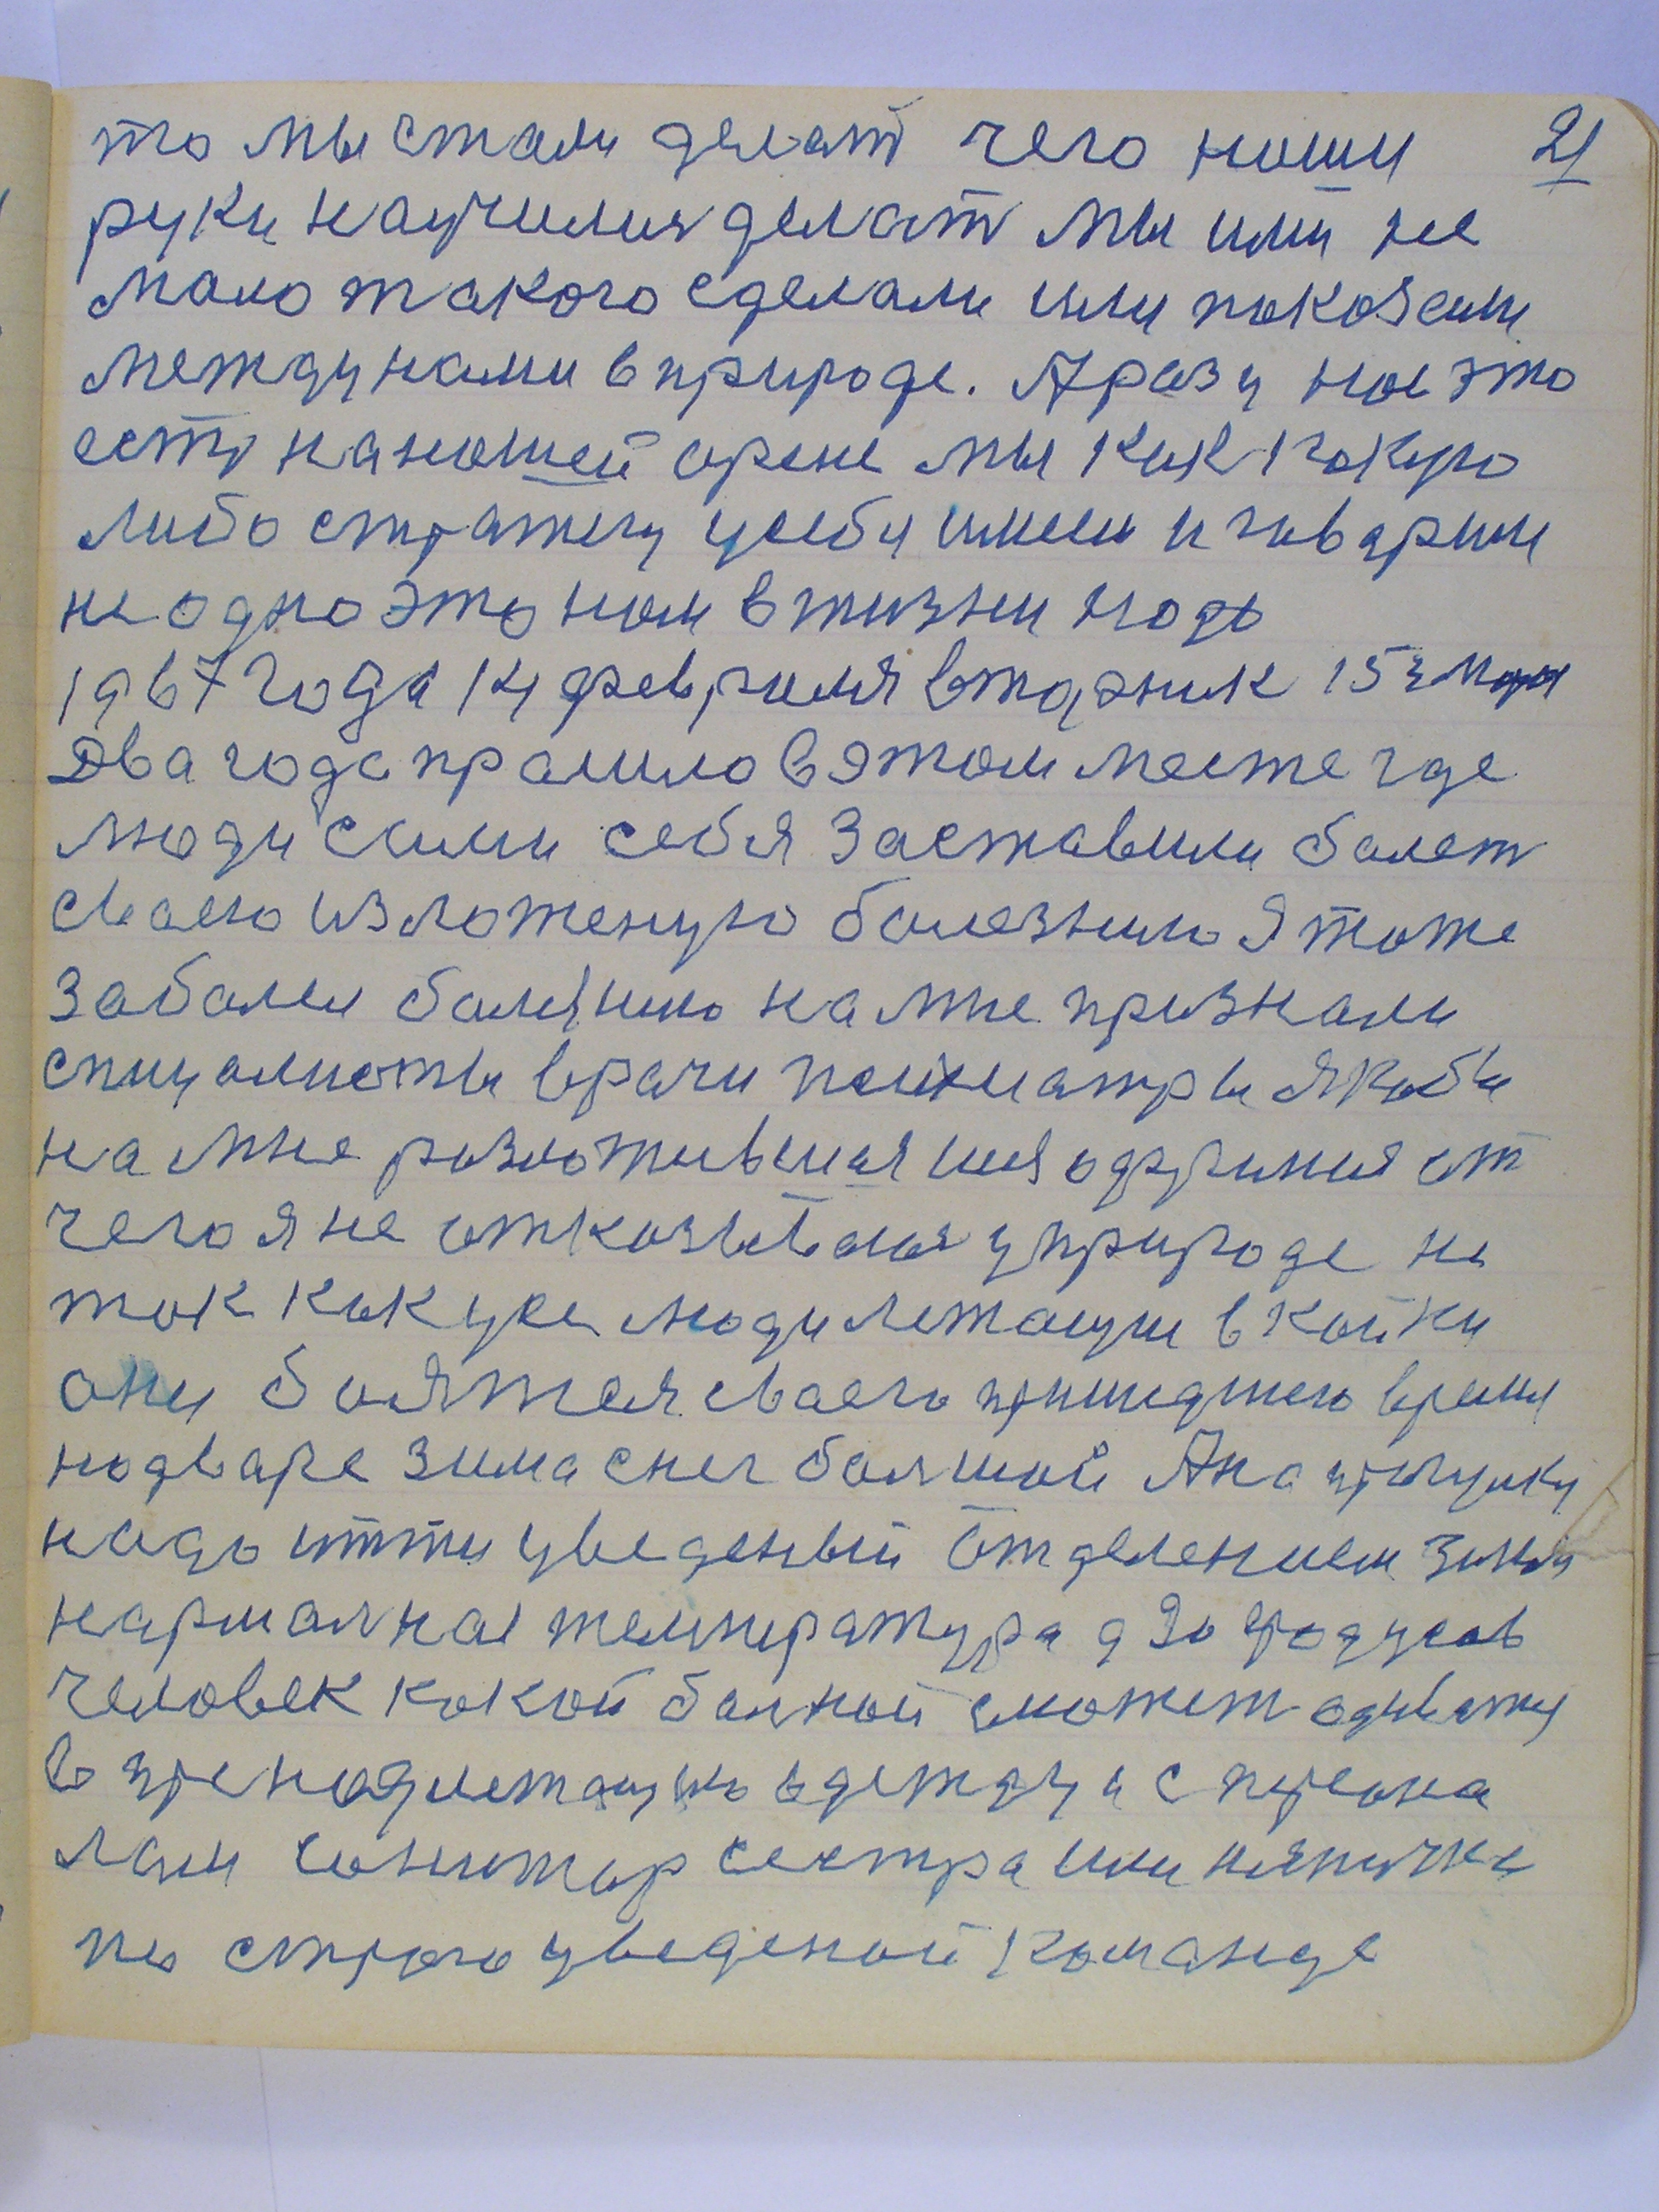 то мы стали делат чего наши 21
руки научился делат мы ими не
мало такого сделали или показали
между нами в природе. А разу нае это
есть на нашей арене мы как какую
либо стратегу у себя имеем и говарим
не одно это нам в жизни надо
1967 года 14 февраля вторник 15
Два года прашло в этом месте где
люди сами себя заставили балет
сваею изложеную балезнию я тоже
забалел на мне признали
специалисты врачи психиатры якобы
на мне разложившиая шизофриния от
чего я не отказывался у природе не
так как усе люди лежащие в койки
они боятся сваего пришедшего время
на дваре зима снег балшой А на прагулку
надо итти уведеный отделением зима
нармалная температура д 20 градусов
человек какой балной сможет адеват
в принадлежащую адежду и с персона
лам санитар сестра или нянечка
по строго уведеной команде